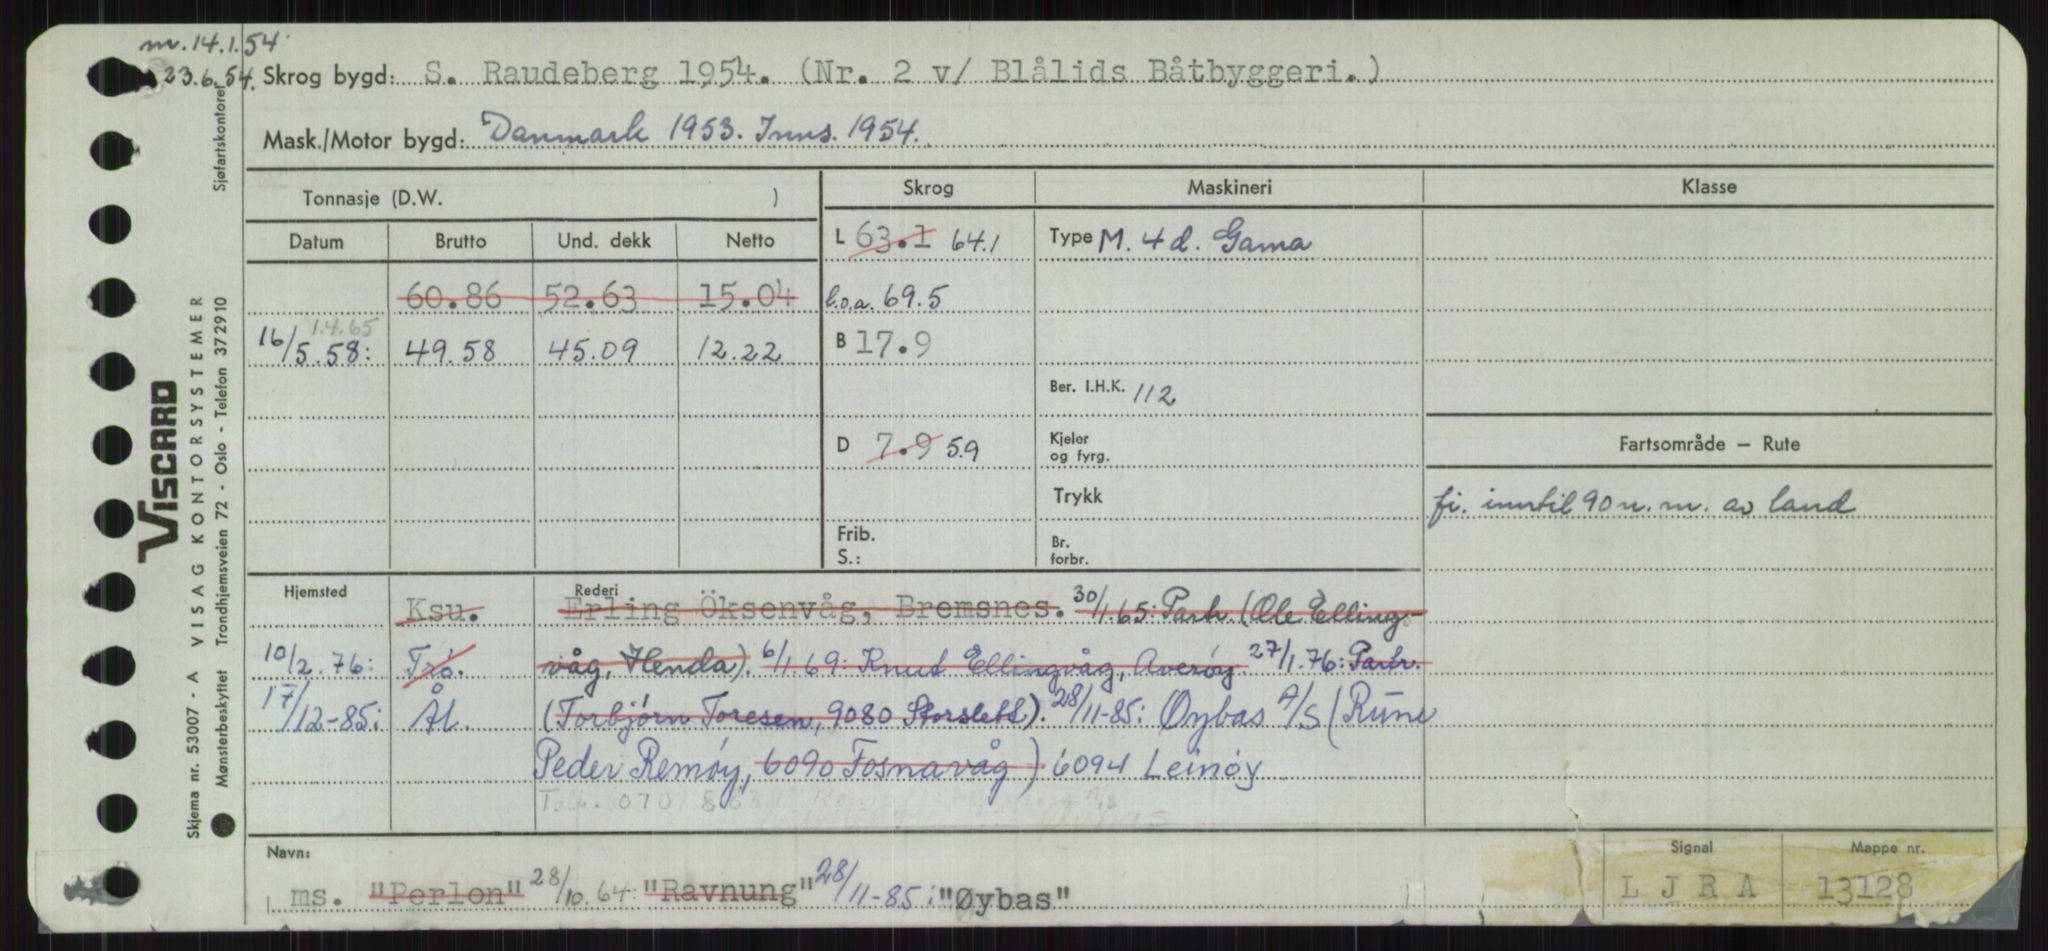 m. 14.1.54
23.6.54. Skrog bygd: S. Raudeberg 1954. (Nr. 2 v/ Blålids Båtbyggeri.)
Mask./Motor bygd: Danmark 1953. Inns. 1954.
Sjøfartskontoret
VISCARD
VISAG KONTORSYSTEMER
Skjema nr. 53007 - A
Mønsterbeskyttet Trondhjemsveien 72 - Oslo - Telefon 372910
Tonnasje (D.W. ) Skrog Maskineri Klasse
Datum Brutto Und. dekk Netto L 63.1 64.1 Type M. 4 d. Gama
60.86 52.63 15.04 l.o.a. 69.5
1.4.65
16/5.58: 49.58 45.09 12.22 B 17.9
Ber. I.H.K. 112
D 7.9 5.9 Kjeler
og fyrg.
Fartsområde – Rute
Trykk
fi. inntil 90 n. m. av land
Frib.
S.:
Br.
forbr.
Hjemsted Rederi
Ksu. Erling Öksenvåg, Bremsnes. 30/1.65: Partr. (Ole Elling-
10/2.76: Trö. våg, Henda). 6/1.69: Knut Ellingvåg, Averøy. 27/1.76: Partr.
17/12-85: Ål. (Torbjørn Toresen, 9080 Storslett). 28/11-85: Øybas A/S (Rune
Peder Remøy, 6090 Fosnavåg) 6094 Leinøy
Navn:
Signal Mappe nr.
ms. "Perlon" 28/10.64: "Ravnung" 28/11-85: "Øybas" LJRA 13128